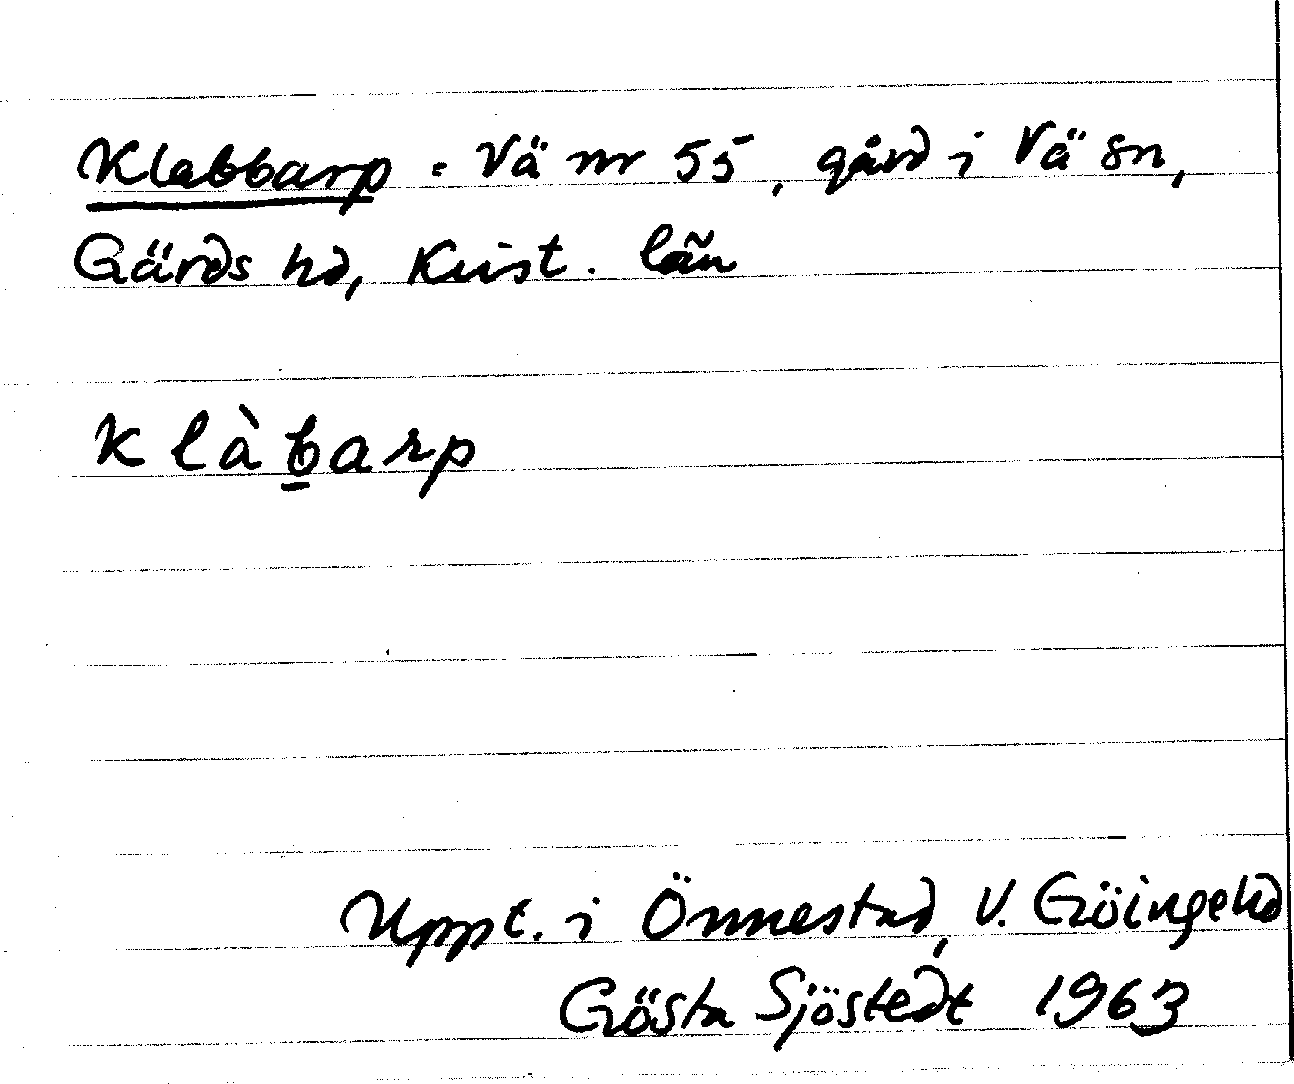 Klabbarp = Vä nr 55, gård i Vä sn,
Gärds hd, Krist. län
klàb̲arp
Uppt. i Önnestad, V. Göingehd
Gösta Sjöstedt 1963